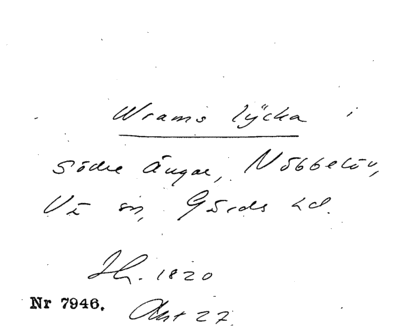 Wrams lycka
Södre Ängar, Nöbbelöv,
Vä sn, Gärds hd.
Sh. 1820
Nr 7946. Akt 27.